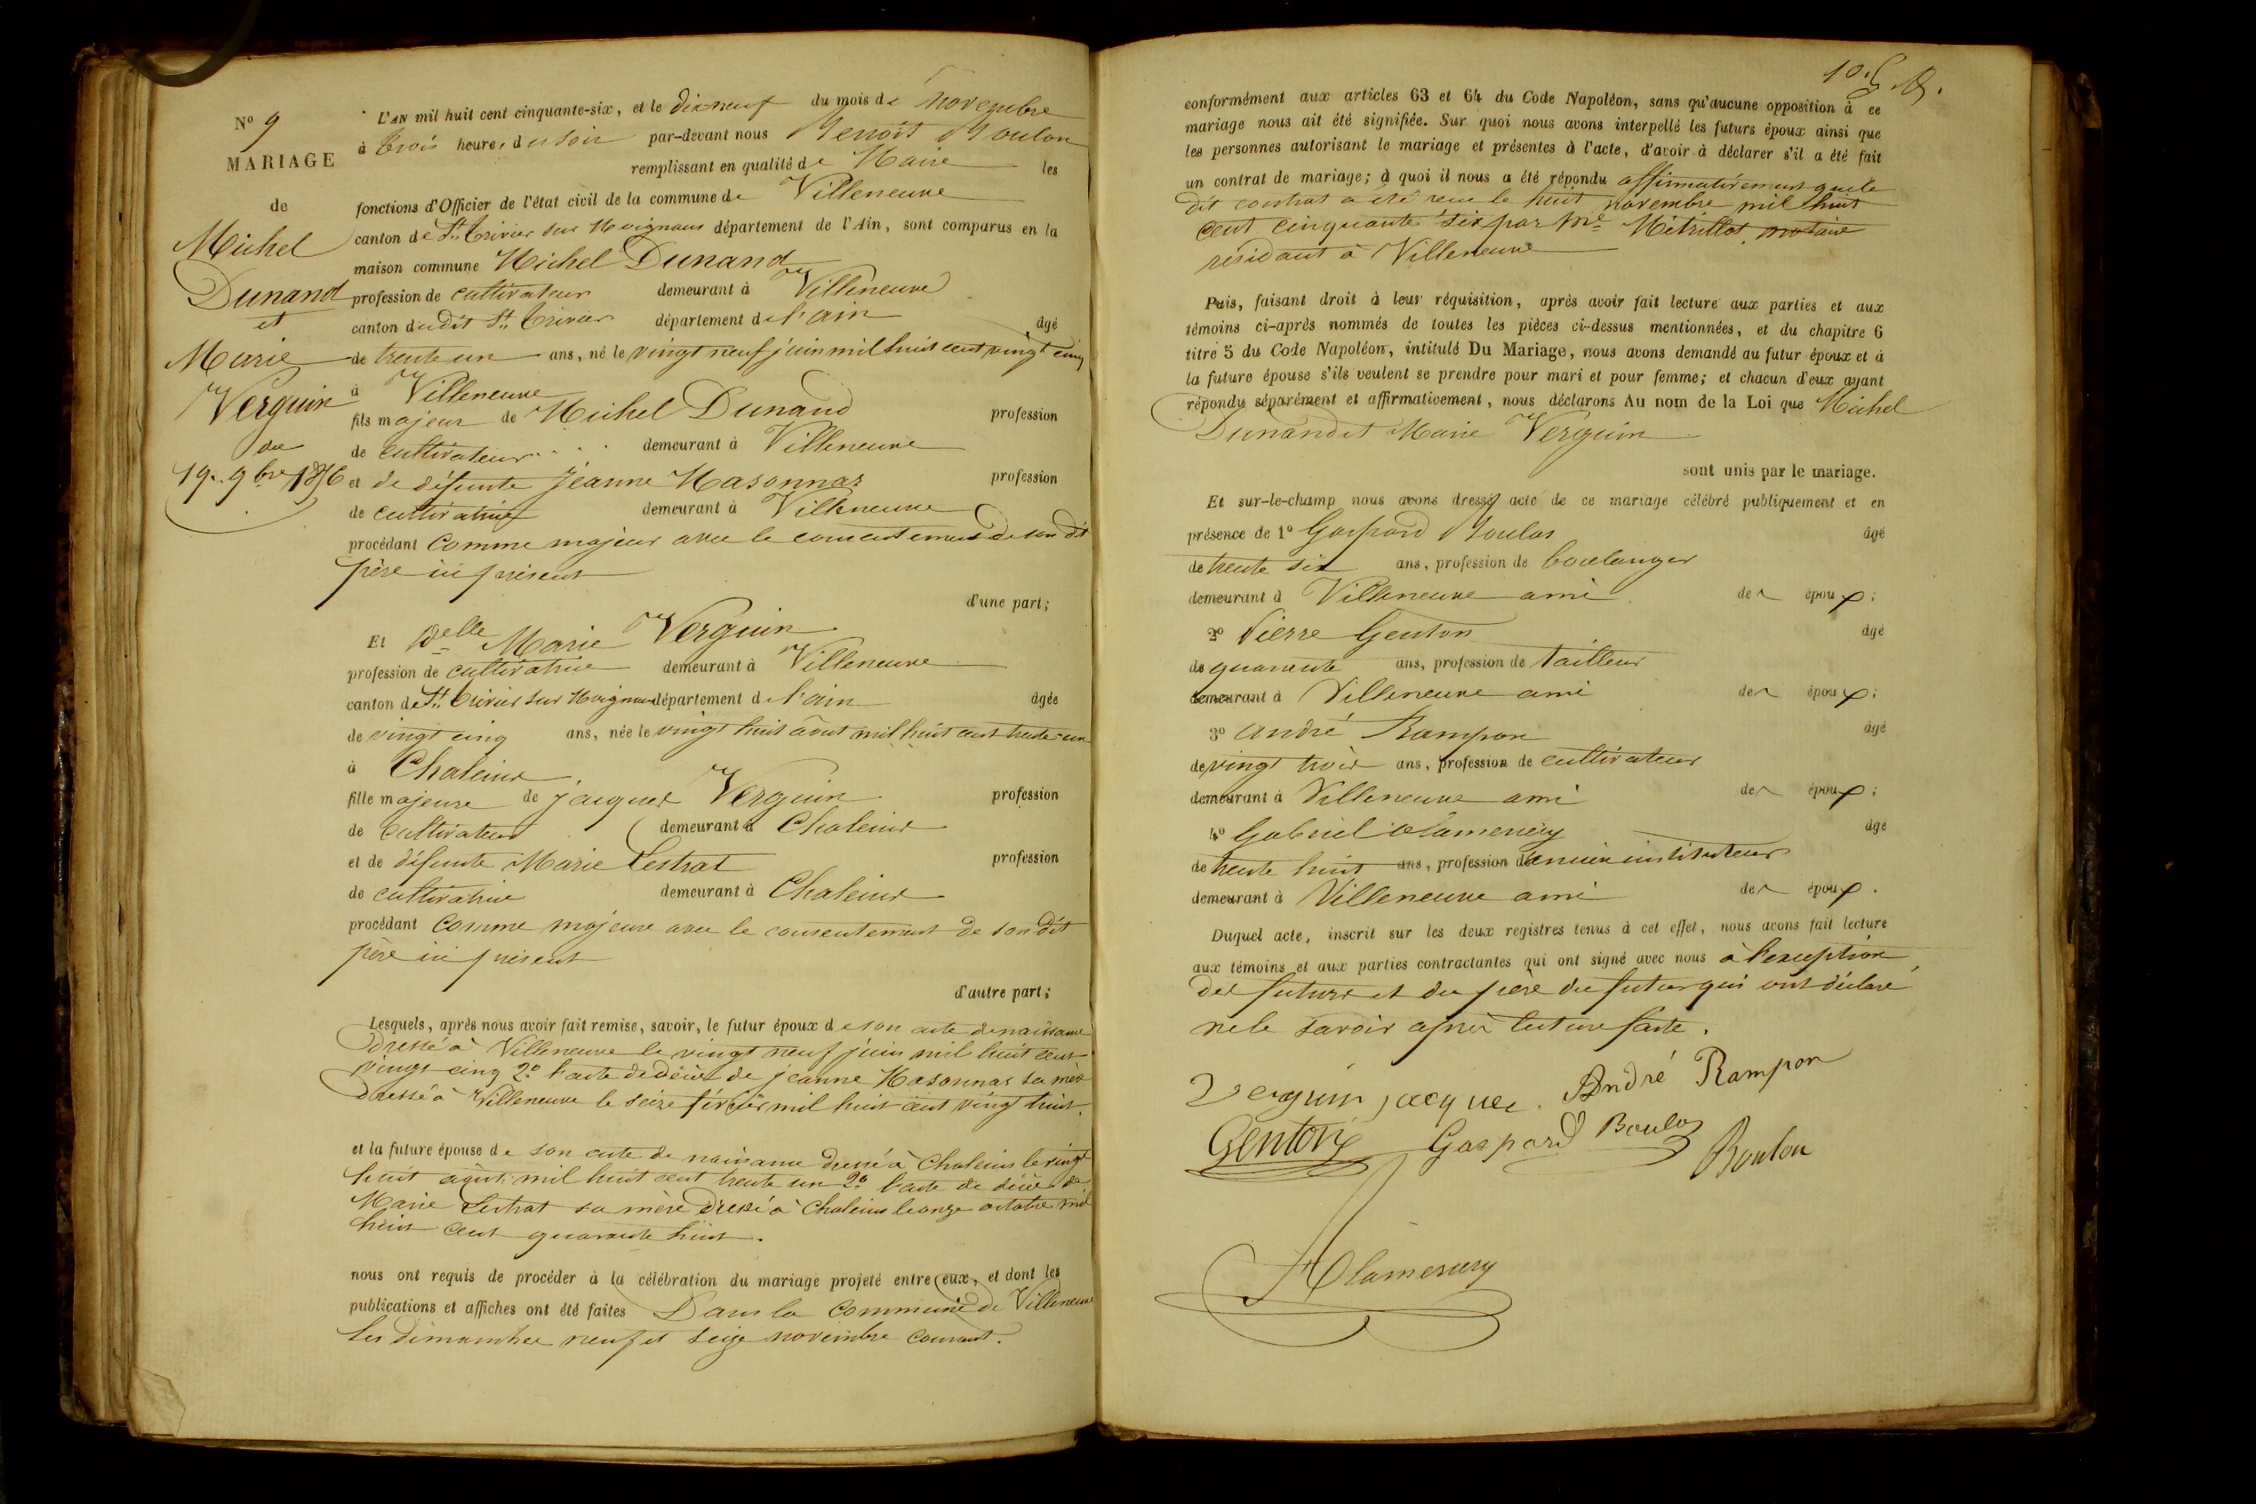 Nº 9
MARIAGE
de
Michel
Dunand
et
Marie
Verguin
du
19. 9bre 1856
L'AN mil huit cent cinquante-six, et le dix neuf du mois de novembre
à trois heures du soir par-devant nous Benoit Boulon
remplissant en qualité de Maire les
fonctions d'Officier de l'état civil de la commune de Villeneuve
canton de St Trivier sur Moignans département de l'Ain, sont comparus en la
maison commune Michel Dunand
profession de cultivateur demeurant à Villeneuve
canton dudit St Trivier département de l'ain âgé
de trente un ans, né le vingt neuf juin mil huit cent vingt cinq
à Villeneuve
fils majeur de Michel Dunand profession
de cultivateur demeurant à Villeneuve
et de défunte Jeanne Masonnas profession
de cultivatrice demeurant à Villeneuve
procédant comme majeur avec le consentement de son dit
père ici présent
d'une part;
Et Delle Marie Verguin
profession de cultivatrice demeurant à Villeneuve
canton de St Trivier sur Moignans département de l'ain âgée
de vingt cinq ans, née le vingt huit août mil huit cent trente un
à Chaleins
fille majeure de Jacques Verguin profession
de cultivateur demeurant à Chaleins
et de défunte Marie Lestrat profession
de cultivatrice demeurant à Chaleins
procédant comme majeure avec le consentement de son dit
père ici présent
d'autre part;
Lesquels, après nous avoir fait remise, savoir, le futur époux de son acte de naissance
dressé à Villeneuve le vingt neuf juin mil huit cent
vingt cinq 2º l'acte de décès de Jeanne Masonnas sa mère
dressé à Villeneuve le seize février mil huit cent vingt huit.
et la future épouse de son acte de naissance dressé à Chaleins le vingt
huit août mil huit cent trente un 2º l'acte de décès de
Marie Lestrat sa mère dressé à Chaleins le onze octobre mil
huit cent quarante huit.
nous ont requis de procéder à la célébration du mariage projeté entre eux, et dont les
publications et affiches ont été faites Dans la commune de Villeneuve
les dimanches neuf et seize novembre courant.
10.
conformément aux articles 63 et 64 du Code Napoléon, sans qu'aucune opposition à ce
mariage nous ait été signifiée. Sur quoi nous avons interpellé les futurs époux ainsi que
les personnes autorisant le mariage et présentes à l'acte, d'avoir à déclarer s'il a été fait
un contrat de mariage; à quoi il nous a été répondu affirmativement que le
dit contrat a été reçu le huit novembre mil huit
cent cinquante six par Me Métrillot notaire
résidant à Villeneuve
Puis, faisant droit à leur réquisition, après avoir fait lecture aux parties et aux
témoins ci-après nommés de toutes les pièces ci-dessus mentionnées, et du chapitre 6
titre 5 du Code Napoléon, intitulé Du Mariage, nous avons demandé au futur époux et à
la future épouse s'ils veulent se prendre pour mari et pour femme; et chacun d'eux ayant
répondu séparément et affirmativement, nous déclarons Au nom de la Loi que Michel
Dunand et Marie Verguin
sont unis par le mariage.
Et sur-le-champ nous avons dressé acte de ce mariage célébré publiquement et en
présence de 1º Gaspard Boulas âgé
de trente six ans, profession de boulanger
demeurant à Villeneuve ami des époux;
2º Pierre Genton âgé
de quarante ans, profession de tailleur
demeurant à Villeneuve ami des époux;
3º André Rampon âgé
de vingt trois ans, profession de cultivateur
demeurant à Villeneuve ami des époux;
4º Gabriel Alamercery âgé
de trente huit ans, profession d'ancien instituteur
demeurant à Villeneuve ami des époux.
Duquel acte, inscrit sur les deux registres tenus à cet effet, nous avons fait lecture
aux témoins et aux parties contractantes qui ont signé avec nous à l'exception
des futurs et du père du futur qui ont déclaré
ne le savoir après lecture faite.
Verguin jacques. André Rampon
Genton Gaspard Boulas
Boulon
Alamercery